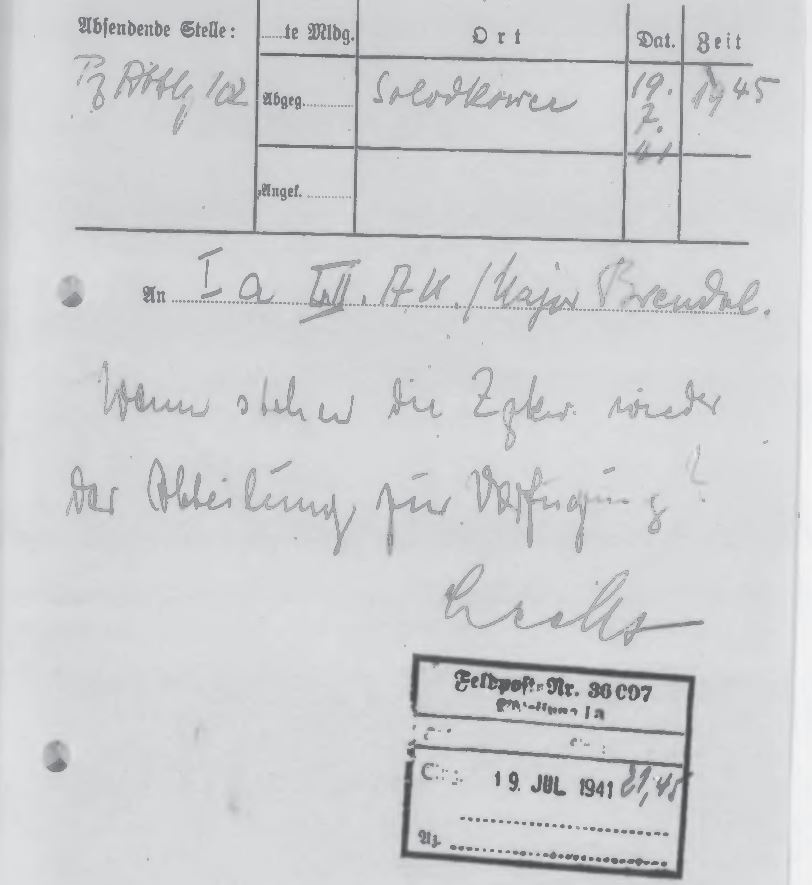 Absendende Stelle: ......te Mldg. Ort Dat. Zeit
Pz Abtlg 102 Abgeg. Solodkowce 19. 7. 41 1945
Angek.
An I a III. AK. / Major Brendel.
Wann stehen die Zgkw. wieder
der Abteilung zur Verfügung?
Feldpost-Nr. 36007
Abteilung Ia
19. JUL 1941 21,45